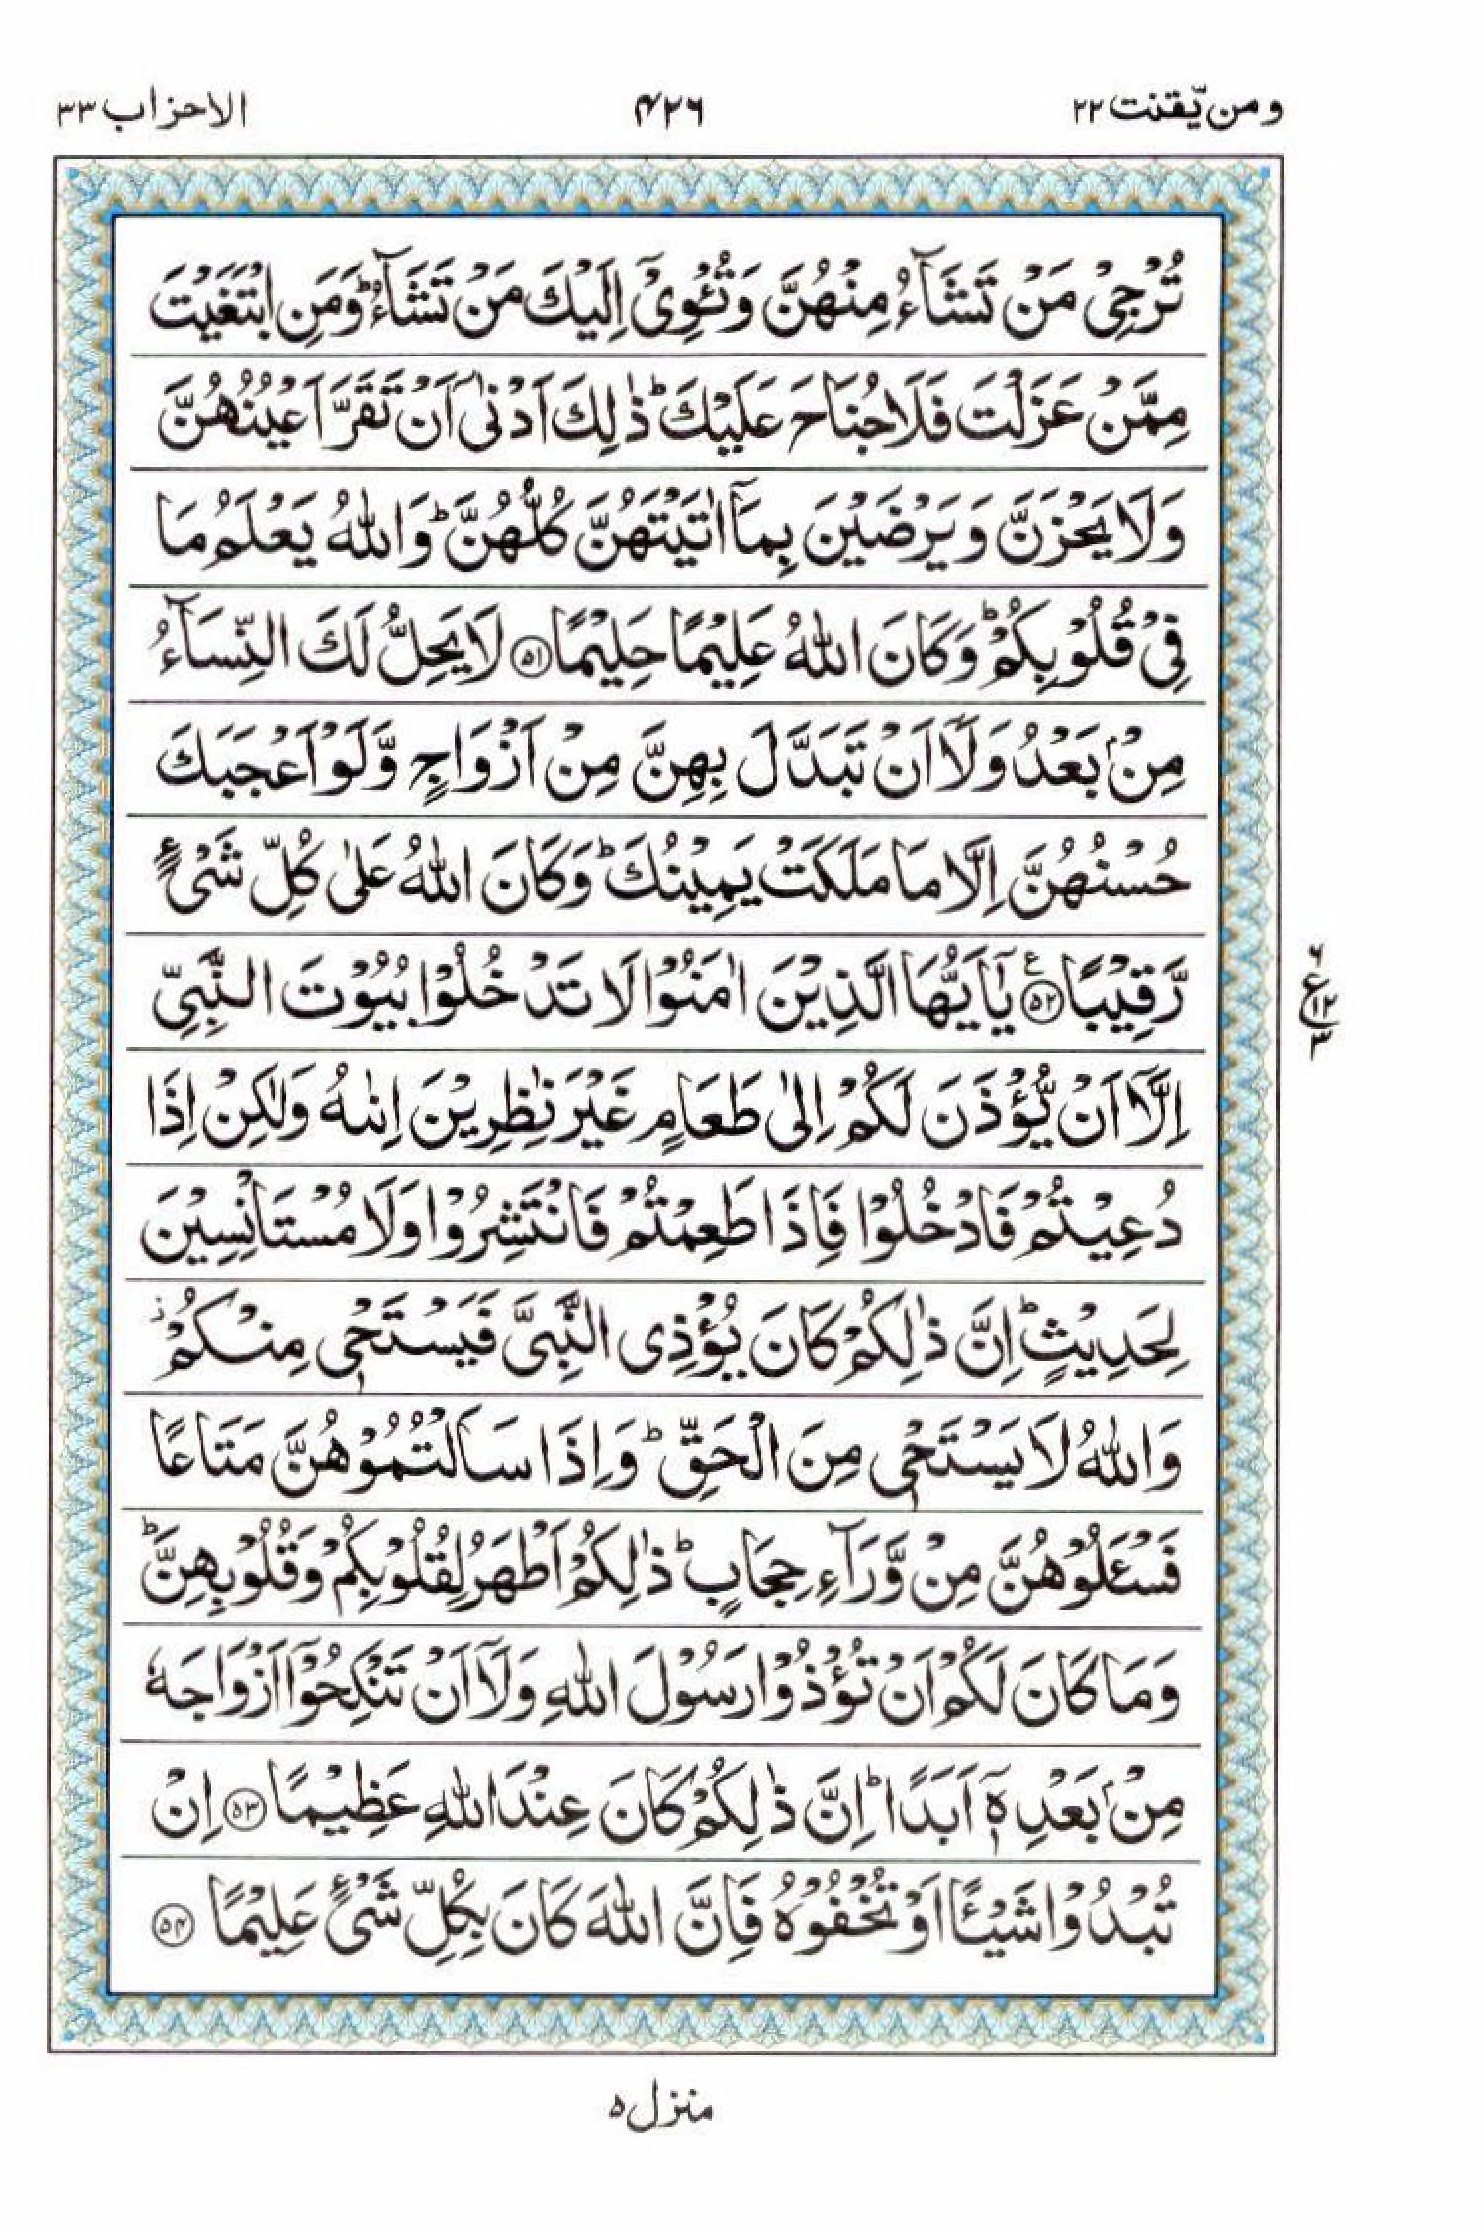 ومن يّقنت ٢٢
٤٢٦
الاحزاب ٣٣
تُرْجِيْ مَنْ تَشَآءُ مِنْهُنَّ وَ تُـْٔوِيْۤ اِلَيْكَ مَنْ تَشَآءُ ؕ وَمَنِ ابْتَغَيْتَ
مِمَّنْ عَزَلْتَ فَلَا جُنَاحَ عَلَيْكَ ؕ ذٰلِكَ اَدْنٰۤي اَنْ تَقَرَّ اَعْيُنُهُنَّ
وَلَا يَحْزَنَّ وَ يَرْضَيْنَ بِمَاۤ اٰتَيْتَهُنَّ كُلُّهُنَّ ؕ وَاللّٰهُ يَعْلَمُ مَا
فِيْ قُلُوْبِكُمْ ؕ وَكَانَ اللّٰهُ عَلِيْمًا حَلِيْمًا ۝٥١ لَا يَحِلُّ لَكَ النِّسَآءُ
مِنْۢ بَعْدُ وَلَاۤ اَنْ تَبَدَّلَ بِهِنَّ مِنْ اَزْوَاجٍ وَّلَوْ اَعْجَبَكَ
حُسْنُهُنَّ اِلَّا مَا مَلَكَتْ يَمِيْنُكَ ؕ وَكَانَ اللّٰهُ عَلٰى كُلِّ شَيْءٍ
رَّقِيْبًا ۝٥٢ ع يٰۤاَيُّهَا الَّذِيْنَ اٰمَنُوْا لَا تَدْخُلُوْا بُيُوْتَ النَّبِيِّ
٦
ع ١٢
٣
اِلَّاۤ اَنْ يُّؤْذَنَ لَكُمْ اِلٰى طَعَامٍ غَيْرَ نٰظِرِيْنَ اِنٰىهُ وَلٰكِنْ اِذَا
دُعِيْتُمْ فَادْخُلُوْا فَاِذَا طَعِمْتُمْ فَانْتَشِرُوْا وَلَا مُسْتَاْنِسِيْنَ
لِحَدِيْثٍ ؕ اِنَّ ذٰلِكُمْ كَانَ يُؤْذِى النَّبِيَّ فَيَسْتَحْيٖ مِنْكُمْ ؗ
وَاللّٰهُ لَا يَسْتَحْيٖ مِنَ الْحَقِّ ؕ وَاِذَا سَاَلْتُمُوْهُنَّ مَتَاعًا
فَسْـَٔلُوْهُنَّ مِنْ وَّرَآءِ حِجَابٍ ؕ ذٰلِكُمْ اَطْهَرُ لِقُلُوْبِكُمْ وَقُلُوْبِهِنَّ ؕ
وَمَا كَانَ لَكُمْ اَنْ تُؤْذُوْا رَسُوْلَ اللّٰهِ وَلَاۤ اَنْ تَنْكِحُوْۤا اَزْوَاجَهٗ
مِنْۢ بَعْدِهٖۤ اَبَدًا ؕ اِنَّ ذٰلِكُمْ كَانَ عِنْدَ اللّٰهِ عَظِيْمًا ۝٥٣ اِنْ
تُبْدُوْا شَيْـًٔا اَوْ تُخْفُوْهُ فَاِنَّ اللّٰهَ كَانَ بِكُلِّ شَيْءٍ عَلِيْمًا ۝٥٤
منزل ٥